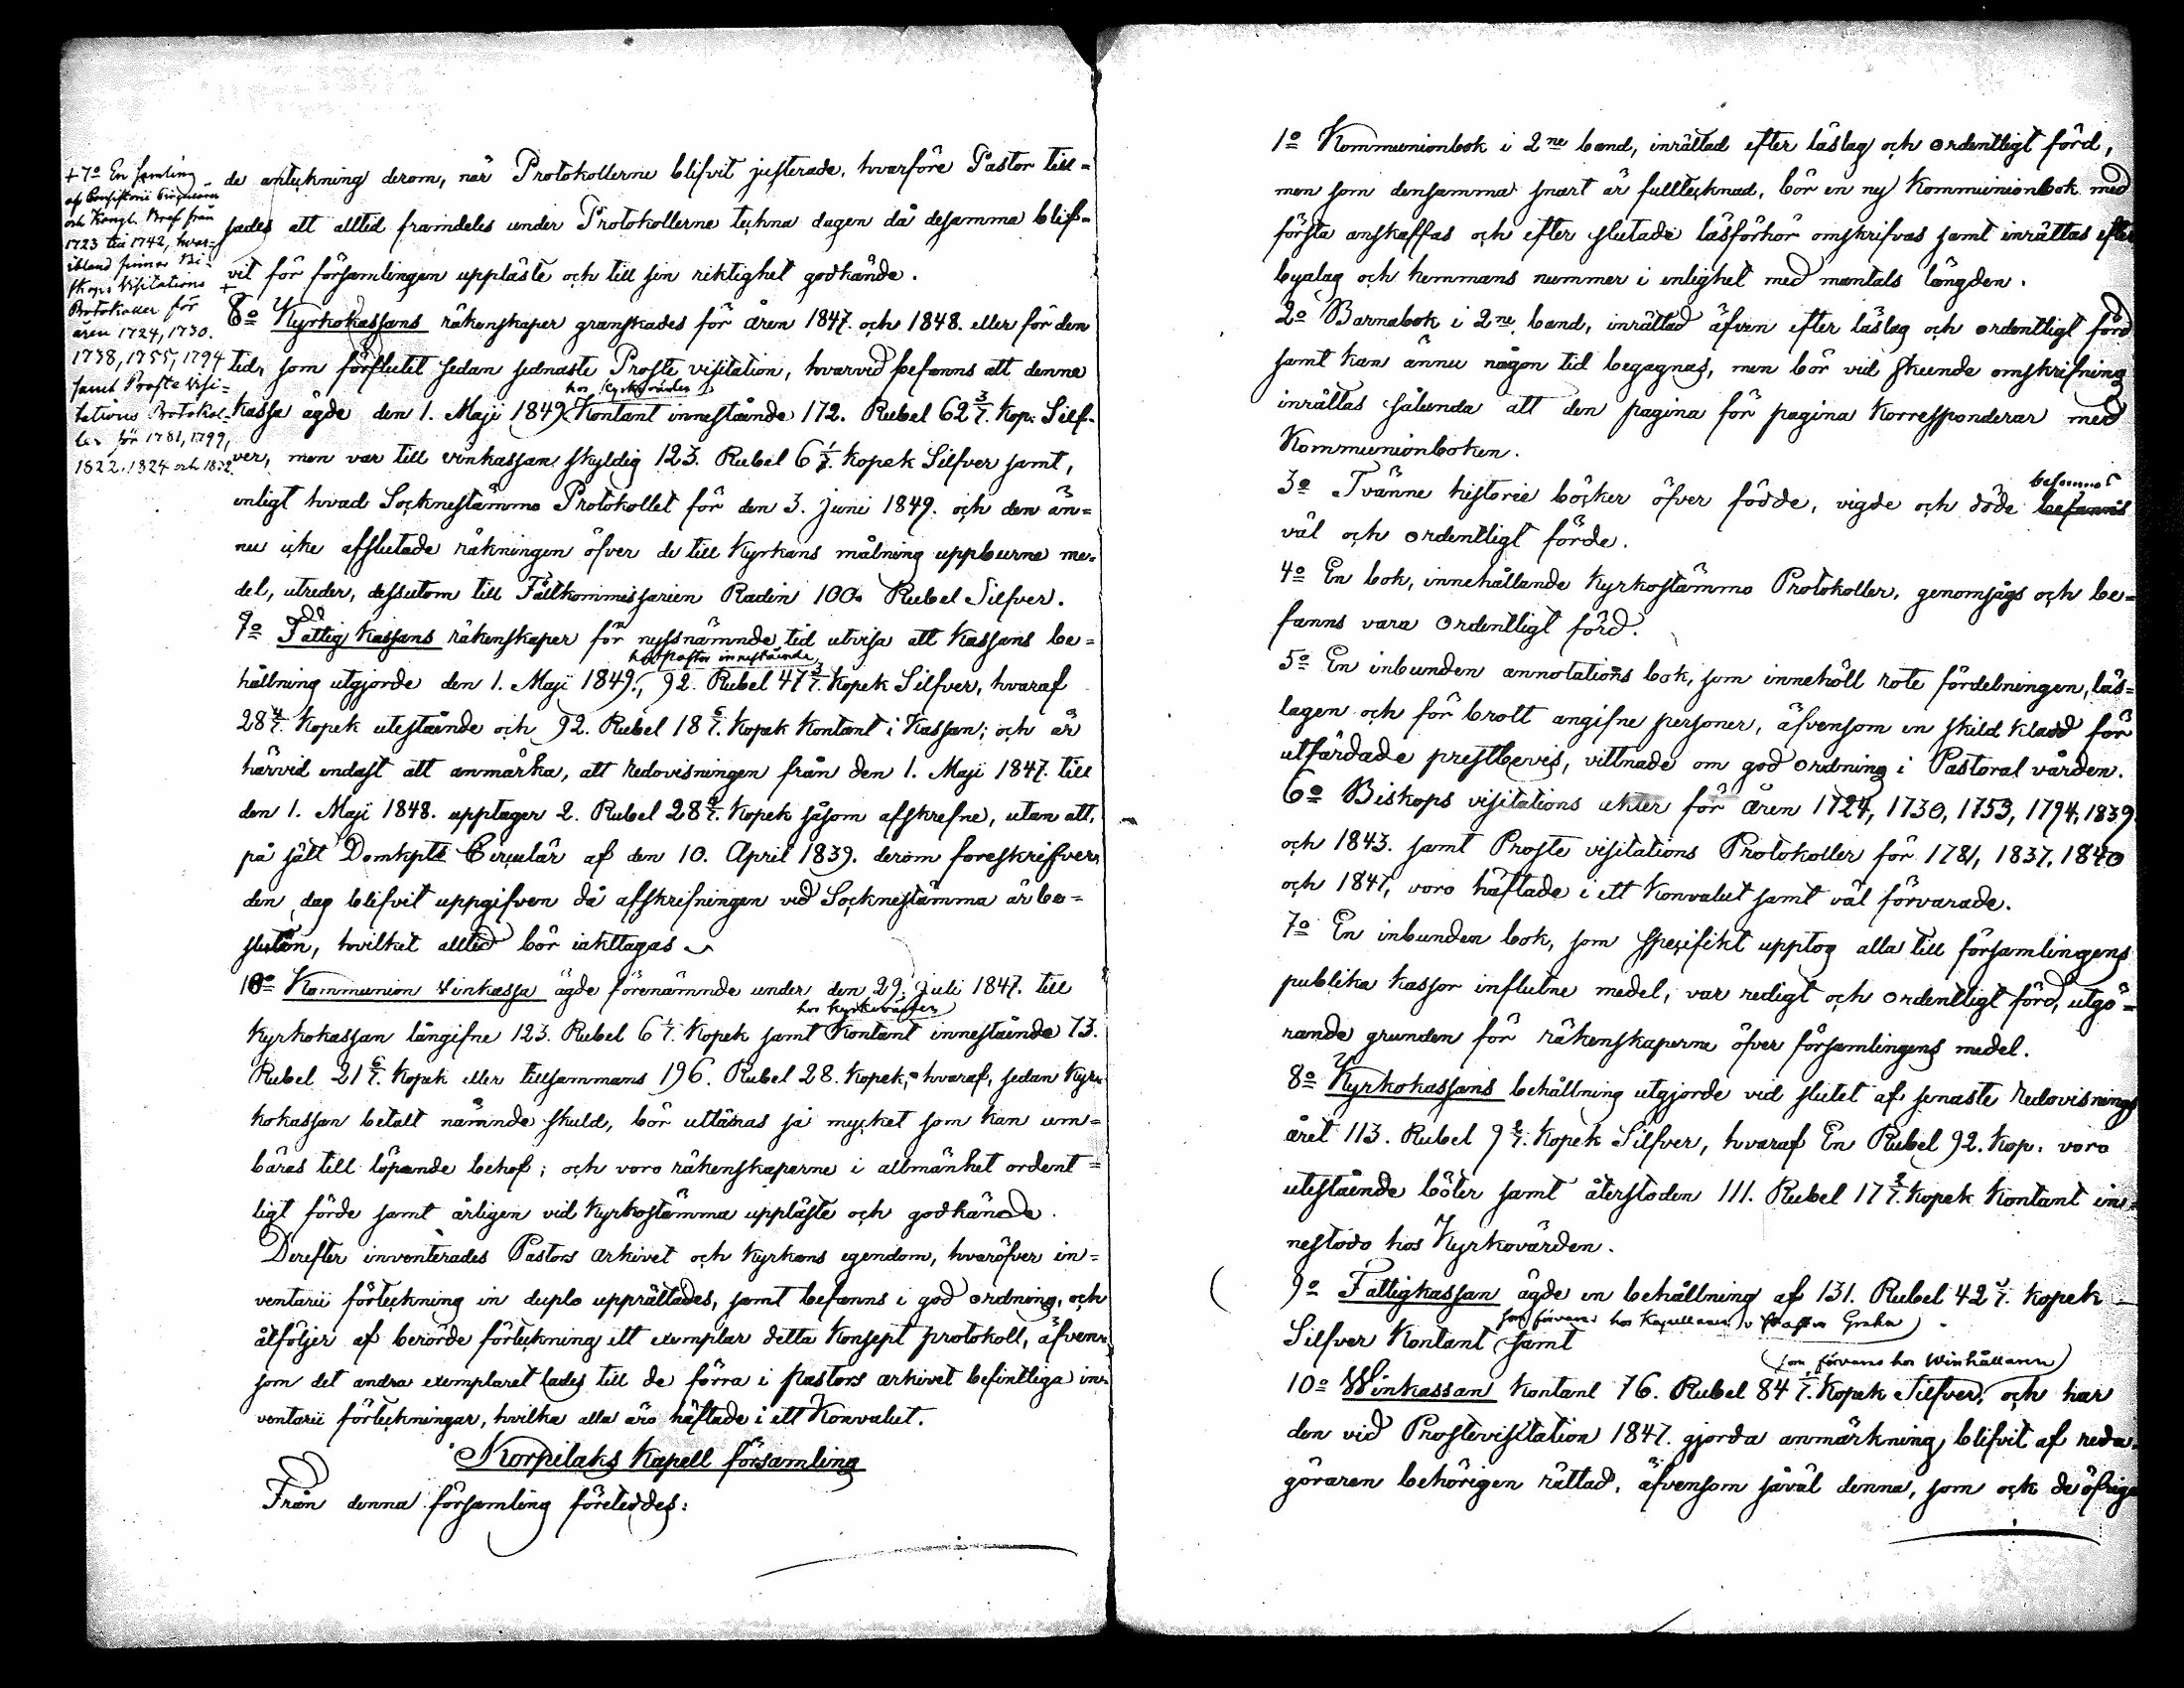 + 7o En samling
af Consistorii Circulairer
och Kongl. Bref från
1723 till 1742, hvar=
ibland finnas Bi=
skops Visitations
Protokoller för
åren 1724, 1730.
1738, 1755, 1794
samt Proste Visi=
tations Protokol=
ler för 1781, 1799,
1822. 1824 och 1832.
de anteckning derom, när Protokollerne blifvit justerade, hvarföre Pastor till=
sades att alltid framdeles under Protokollerne teckna dagen då desamma blif=
vit för församlingen uppläste och till sin riktighet godkände.
+
8o Kyrkokassans räkenskaper granskades för åren 1847. och 1848. eller för den
tid, som förflutit sedan sednaste Proste visitation, hvarvid befanns att denna
hos Kyrkovärden
kassa ägde den 1. Maji 1849. Kontant innestående 172. Rubel 62 3/7. Kop. Silf=
ver, men var till vinkassan skyldig 123. Rubel 6 1/7. Kopek Silfver samt,
enligt hvad Socknestämmo Protokollet för den 3. Juni 1849. och den än=
nu icke afslutade räkningen öfver de till Kyrkans målning uppburne me=
del, utreder, dessutom till Fältkommissarien Radin 100. Rubel Silfver.
9o Fattig Kassans räkenskaper för nyssnämnde tid utvisa att Kassans be=
hos Pastor innestående
hållning utgjorde den 1. Maji 1849., 92. Rubel 47 3/7. Kopek Silfver, hvaraf
28 4/7. Kopek utestående och 92. Rubel 18 6/7. Kopek Kontant i Kassan; och är
härvid endast att anmärka, att redovisningen från den 1. Maji 1847. till
den 1. Maji 1848. upptager 2. Rubel 28 4/7. Kopek såsom afskrefne, utan att,
på sätt Domkptls Circulär af den 10. April 1839. derom föreskrifver,
den dag blifvit uppgifven då afskrifningen vid Socknestämma är be=
sluten, hvilket alltid bör iakttagas
10o Kommunion Vinkassa ägde förenämnde under den 29. Juli 1847. till
hos Kyrkovärden
Kyrkokassan långifne 123. Rubel 6 1/7. Kopek samt Kontant innestående 73.
Rubel 21 6/7. Kopek eller tillsammans 196. Rubel 28. Kopek, hvaraf, sedan Kyr=
kokassan betalt nämnde skuld, bör utlånas så mycket som kan um=
bäras till löpande behof; och voro räkenskaperne i allmänhet ordent=
ligt förde samt årligen vid Kyrkostämma uppläste och godkände.
Derefter inventerades Pastors arkivet och Kyrkans egendom, hvaröfver in=
ventarii förteckning in duplo upprättades, samt befanns i god ordning, och
åtföljer af berörde förteckning ett exemplar detta Konsept protokoll, äfven=
som det andra exemplaret lades till de förra i pastors arkivet befintliga in=
ventarii förteckningar, hvilka alla äro häftade i ett Konvalut.
Korpilaks Kapell församling
Från denna församling företeddes:
1o Kommunionbok i 2ne band, inrättad efter läslag och ordentligt förd,
men som densamma snart är fulltecknad, bör en ny Kommunionbok med
första anskaffas och efter slutade läsförhör omskrifvas samt inrättas efter
byalag och hemmans nummer i enlighet med mantals längden.
2o Barnabok i 2ne band, inrättad äfven efter läslag och ordentligt förd
samt kan ännu någon tid begagnas, men bör vid skeende omskrifning
inrättas sålunda att den pagina för pagina Korresponderar med
Kommunionboken.
befunnos
3o Tvänne historie böcker öfver födde, vigde och döde befanns
väl och ordentligt förde.
4o En bok, innehållande Kyrkostämmo Protokoller, genomsågs och be=
fanns vara ordentligt förd.
5o En inbunden annotations bok, som innehöll rote fördelningen, läs=
lagen och för brott angifne personer, äfvensom en skild kladd för
utfärdade prestbevis, vittnade om god ordning i Pastoral vården.
6o Biskops visitations akter för åren 1724, 1730, 1753, 1794, 1839
och 1843. samt Proste visitations Protokoller för 1781, 1837, 1840
och 1847, voro häftade i ett Konvalut samt väl förvarade.
7o En inbunden bok, som specifikt upptog alla till församlingens
publika kassor influtne medel, var redigt och ordentligt förd, utgö=
rande grunden för räkenskaperne öfver församlingens medel.
8o Kyrkokassans behållning utgjorde vid slutet af senaste redovisnings
året 113. Rubel 9 2/7. Kopek Silfver, hvaraf En Rubel 92. Kop. voro
utestående böter samt återstoden 111. Rubel 17 2/7. Kopek Kontant in=
nestodo hos Kyrkovärden.
9o Fattigkassan ägde en behållning af 131. Rubel 42 /7. Kopek
som förvaras hos Kapellanen
Silfver Kontant samt
som förvaras hos Winhållaren
10o Winkassan Kontant 76. Rubel 84 /7. Kopek Silfver, och har
den vid Prostevisitation 1847. gjorda anmärkning blifvit af redo=
göraren behörigen rättad, äfvensom såväl denna, som ock de öfriga